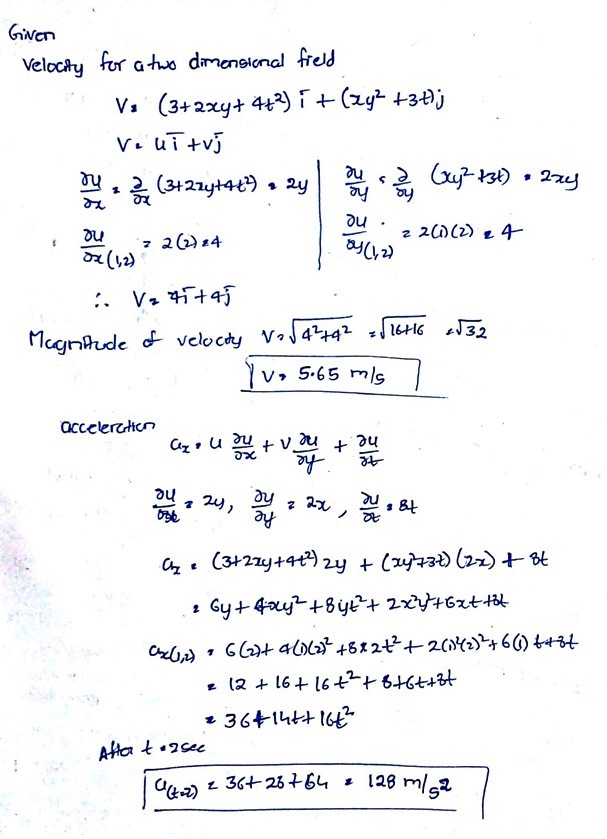 Given
Velocity for a two dimensional field
V = (3+2xy+4t²) i̅ + (xy²+3t) j
V = u i̅ + v j̅
∂u/∂x = ∂/∂x (3+2xy+4t²) = 2y | ∂u/∂y = ∂/∂y (xy²+3t) = 2xy
∂u/∂x (1,2) = 2(2) = 4 | ∂u/∂y (1,2) = 2(1)(2) = 4
∴ V = 4i̅ + 4j̅
Magnitude of velocity V = √4²+4² = √16+16 = √32
V = 5.65 m/s
acceleration
ax = u ∂u/∂x + v ∂u/∂y + ∂u/∂t
∂u/∂x = 2y, ∂y/∂y = 2x, ∂u/∂t = 8t
ax = (3+2xy+4t²) 2y + (xy²+3t) (2x) + 8t
= 6y + 4xy² + 8yt² + 2x²y² + 6xt + 8t
ax(1,2) = 6(2) + 4(1)(2)² + 8×2t² + 2(1)²(2)² + 6(1)t + 8t
= 12 + 16 + 16t² + 8 + 6t + 8t
= 36 + 14t + 16t²
After t = 2sec
a(t=2) = 36 + 28 + 64 = 128 m/s²